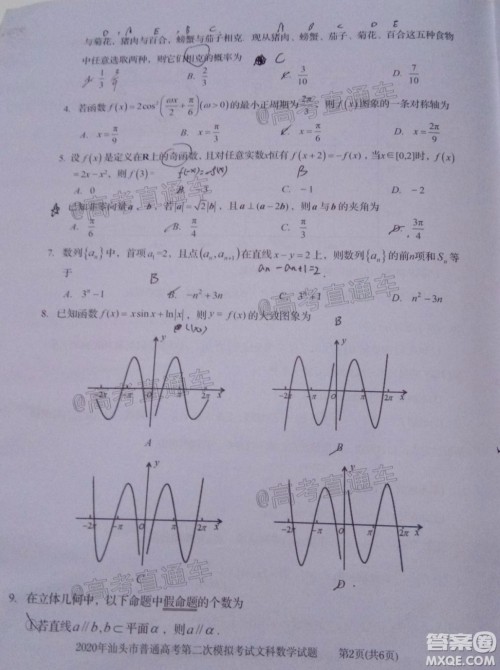 与菊花、猪肉与百合、螃蟹与茄子相克. 现从猪肉、螃蟹、茄子、菊花、百合这五种食物
中任意选取两种，则它们相克的概率为 C
A. 1/3 B. 2/3 C. 3/10 D. 7/10
4. 若函数 f(x)=2cos²(ωx/2+π/6)(ω>0)的最小正周期为2π/3，则f(x)图象的一条对称轴为
A. x=π/9 B. x=π/3 C. D. x=2π/9
5. 设 f(x)是定义在R上的奇函数，且对任意实数x恒有 f(x+2)=-f(x)，当x∈[0,2]时，f(x)
=2x-x²，则 f(3)= B
A. 0 B. C. -1 D. -2
已知非零向量a，b，若|a|=√2|b|，且a⊥(a-2b)，则a与b的夹角为
A. π/6 B. π/4 C. D. 3π/4
7. 数列{aₙ}中，首项a₁=2，且点(aₙ,aₙ₊₁)在直线x-y=2上，则数列{aₙ}的前n项和Sₙ等
于 B aₙ-aₙ₊₁=2
A. 3ⁿ-1 B. -n²+3n C. 3ⁿ+1 D. n²-3n
8. 已知函数 f(x)=xsinx+ln|x|，则 y=f(x)的大致图象为
B
y
-2π -π 0 π 2π x
A
y
-2π -π 0 π 2π x
B
y
-2π -π 0 π 2π x
C
y
-2π -π 0 π 2π x
D.
9. 在立体几何中，以下命题中假命题的个数为
①若直线a//b,b⊂平面α，则a//α.
2020年汕头市普通高考第二次模拟考试文科数学试题 第2页(共6页)
@高考直通车
@高考直通车
@高考直通车
@高考直通车
@高考直通车
答案圈
MXQE.COM